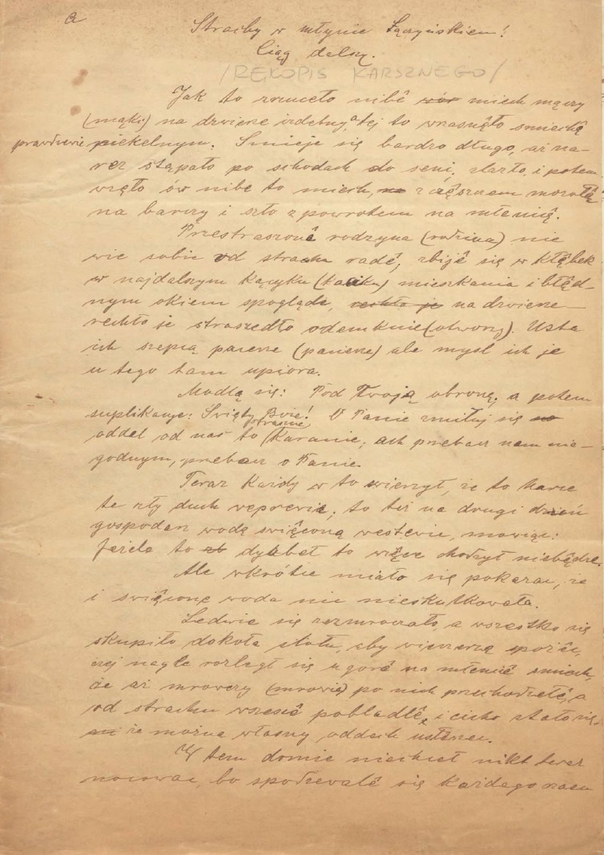 a
Strachy w młynie Łączyńskiem!
Ciąg dalszy.
/RĘKOPIS KARSZNEGO/
Jak to rzuceło nibë miech mączy
(mąki) na dzwiérze izdebny, a tej to wrasnęło smiechę
prawdzewie piekelnym. Smieje się bardzo długo, aż na-
rez stąpało po schodach do seni, zlazło, i potem
wzęło ów nibe to miech, z ciężczasem
na barczy i szło z powrotem na młenicę.
Przestraszoné rodzyna (rodzina) nie
wie sobie od strachu radé, zbijé się w kłębek
w najdalnym kącyku (kątiku) mieszkania i błęd-
nym okiem spogląda, na dzwierze
rechło je straszedło odemknie (otworzy). Usta
ich szepią pacerze (pacierze) ale mysl ich je
u tego tam upiora.
Modlą się: Pod Twoją obronę, a potem
suplikacye: Swięty Boże! O Panie zmiłuj się
oddal od nas to straszne Karanie, ach przebacz nam nie-
godnym, przebacz o Panie.
Teraz każdy w to wierzył, że to harce
te zły duch wëprewie, to też na drugi dzień
gospodarz wodę swięconą westewie, mowiąc:
jezele to dyabeł to więce chodzył niebędze.
Ale wkrótce miało się pokazac, że
i swięconę woda nie nieskutkowała.
Ledwie się rozmroczało, a wszestko się
skupiło dokoła stołu, aby wieczerzę spożëc,
zej nagle rozległ się u górë na młenicë smiech,
że aż mrovczy (mrowie) po nich przechodzełé, a
od strachu wszesce pobladlë, i cicho stało się,
że można własny oddech usłeszec.
W tem domie niechceł nikt teraz
nocowac, bo spodzewałë się każdego razu